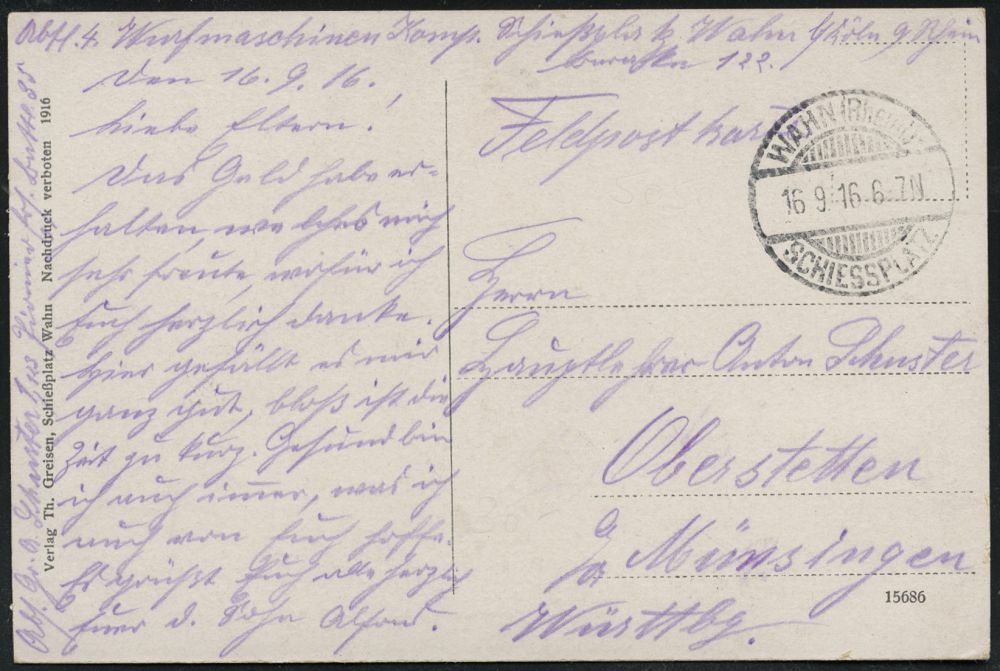 Abtl. 4. Wurfmaschinen Komp. Schießplatz Wahn b/Köln a/Rhein
Baracke 122.
Den 16.9.16.
Liebe Eltern!
Das Geld habe er-
halten, welches mich
sehr freute, wofür ich
Euch herzlich danke.
Hier gefällt es mir
ganz gut, bloß ist die
Zeit zu kurz. Gesund bin
ich auch immer, was ich
auch von Euch hoffe.
Es grüßt Euch alle herzlich
Euer d. Sohn Alfons.
Abs. A. Schuster Pionier
Verlag Th. Greisen, Schießplatz Wahn Nachdruck verboten 1916
Feldpostkarte
WAHN (Rhein)
16.9.16.6-7N
SCHIESSPLATZ
Herrn
Hauptlehrer Anton Schuster
Oberstetten
O/A Münsingen
Württbg.
15686